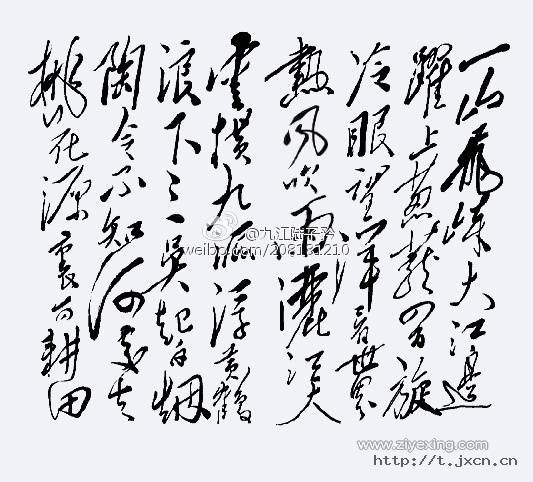 一山飛峙大江邊
躍上葱蘢四百旋
冷眼望洋看世界
熱風吹雨灑江天
雲横九派浮黄鶴
浪下三吳起白烟
陶令不知何處去
桃花源裏可耕田
@九江陆子衿
weibo.com/208131210
www.ziyexing.com
http://t.jxcn.cn/